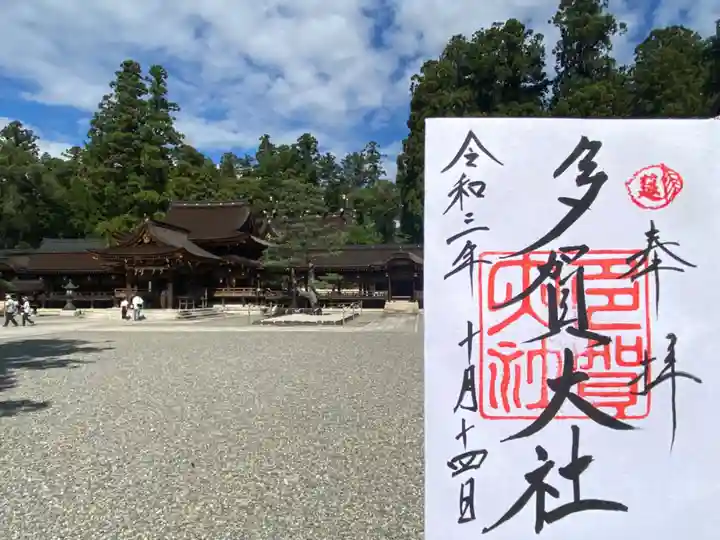 奉拝
多賀大社
令和三年
十月十四日
多賀
大社
延